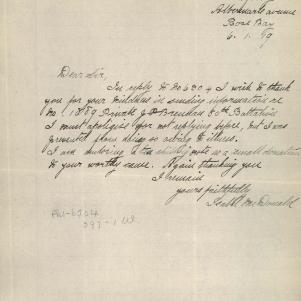 Albemarle avenue
Rose Bay
6. 1. 19
Dear Sir,
In reply to No 6304 I wish to thank
you for your kindness in sending information re
No 1889 Private J Brennan 30th Battalion
I must apologise for not replying before, but I was
prevented from doing so owing to illness.
I am enclosing a ten shilling note as a small donation
to your worthy cause. Again thanking you
I remain
yours faithfully
McDonald